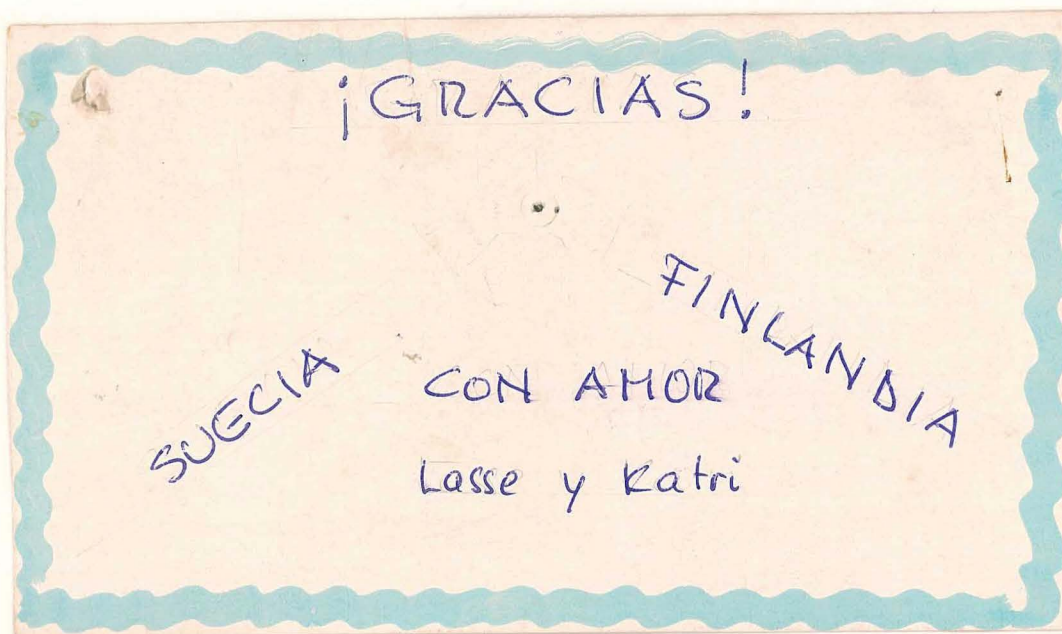 ¡GRACIAS!
FINLANDIA
SUECIA
CON AMOR
Lasse y Katri